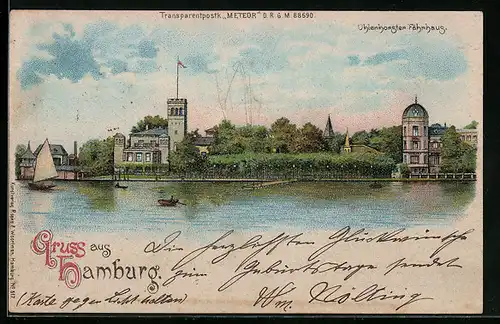 Transparentpostk. „METEOR" D.R.G.M. 88690.
Uhlenhorster Fährhaus.
Gruss aus
Hamburg.
Die herzlichsten Glückwünsche
zum Geburtstage sendet
Wm. Nölting
(Karte gegen Licht halten)